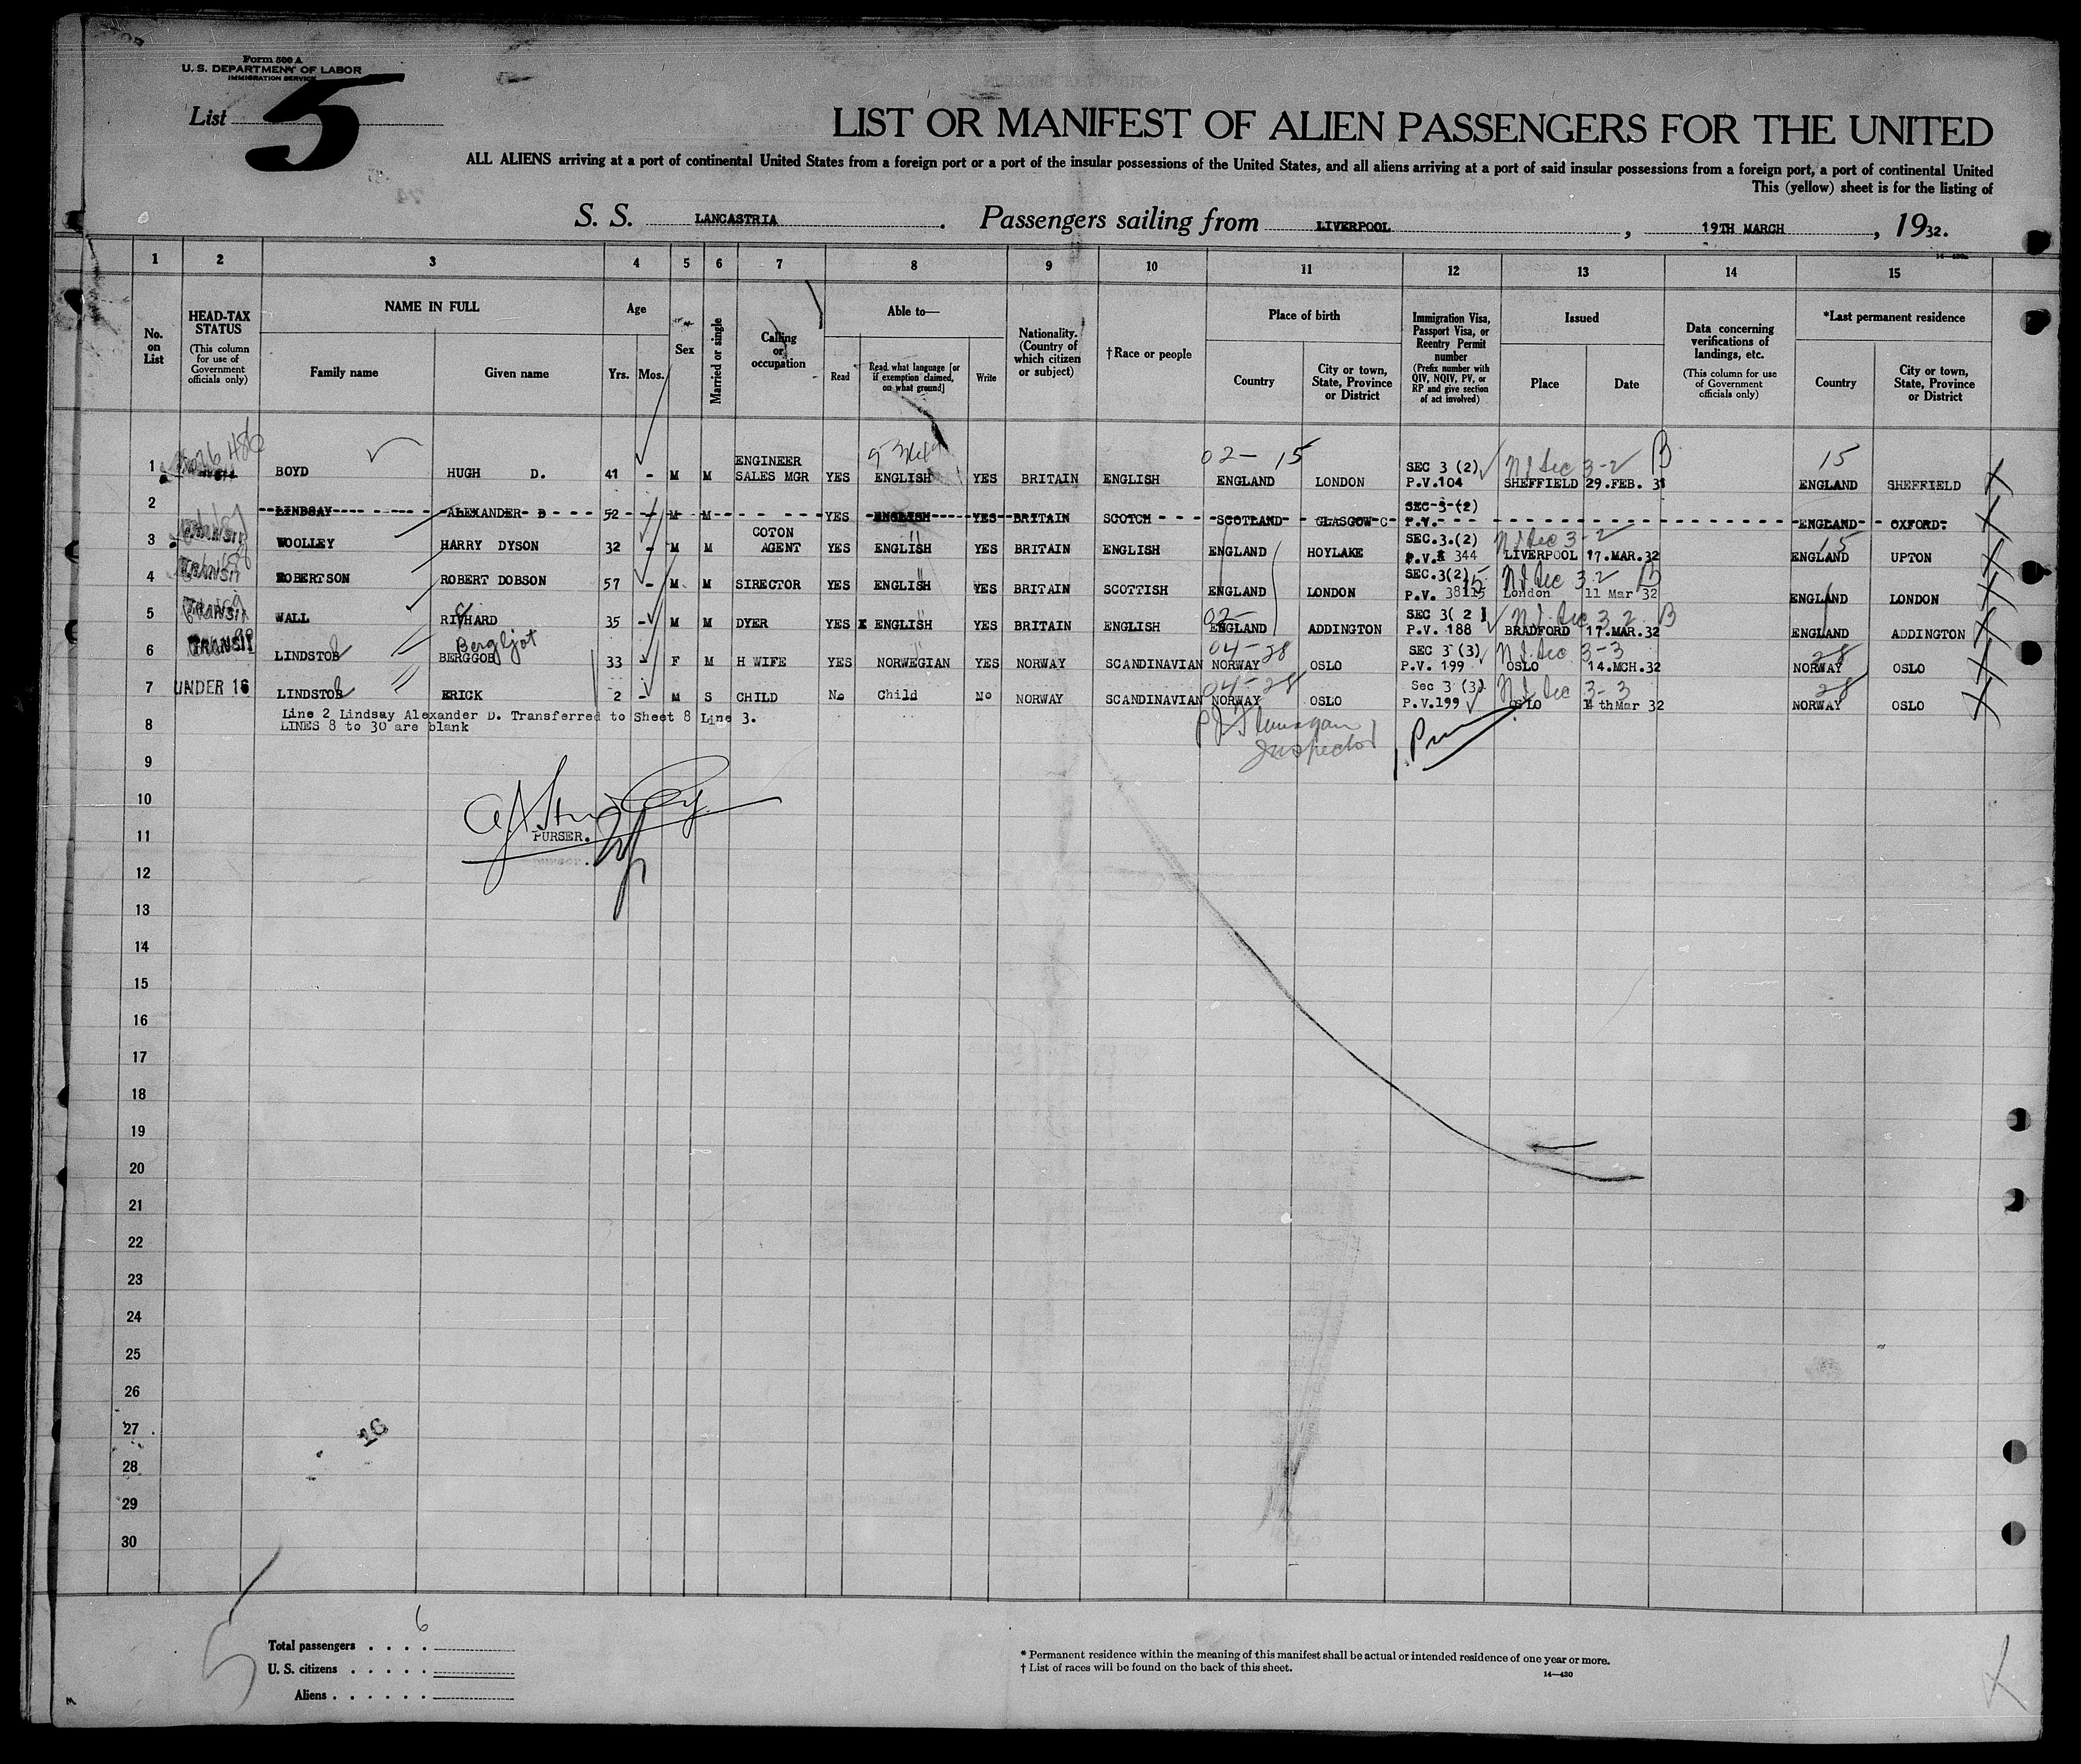 Form 500 A
U. S. DEPARTMENT OF LABOR
IMMIGRATION SERVICE
List 5
LIST OR MANIFEST OF ALIEN PASSENGERS FOR THE UNITED
ALL ALIENS arriving at a port of continental United States from a foreign port or a port of the insular possessions of the United States, and all aliens arriving at a port of said insular possessions from a foreign port, a port of continental United
This (yellow) sheet is for the listing of
S. S. LANCASTRIA. Passengers sailing from LIVERPOOL, 19TH MARCH, 1932.
1 2 3 4 5 6 7 8 9 10 11 12 13 14 15
No. on List
HEAD-TAX STATUS (This column for use of Government officials only)
NAME IN FULL
Family name
Given name
Age
Yrs. Mos.
Sex
Married or single
Calling or occupation
Able to—
Read
Read what language [or if exemption claimed, on what ground]
Write
Nationality. (Country of which citizen or subject)
†Race or people
Place of birth
Country
City or town, State, Province or District
Immigration Visa, Passport Visa, or Reentry Permit number (Prefix number with QIV, NQIV, PV, or RP and give section of act involved)
Issued
Place
Date
Data concerning verifications of landings, etc. (This column for use of Government officials only)
*Last permanent residence
Country
City or town, State, Province or District
02- 15 15
1 BOYD HUGH D. 41 - M M ENGINEER SALES MGR YES ENGLISH YES BRITAIN ENGLISH ENGLAND LONDON SEC 3 (2) P.V.104 SHEFFIELD 29.FEB. 3 ENGLAND SHEFFIELD
2 LINDSAY ALEXANDER D 52 - M M YES ENGLISH YES BRITAIN SCOTCH SCOTLAND GLASGOW SEC 3 (2) P.V. ENGLAND OXFORD
3 TRANSIT WOOLLEY HARRY DYSON 32 - M M COTON AGENT YES ENGLISH YES BRITAIN ENGLISH ENGLAND HOYLAKE SEC.3.(2) P.V. 344 LIVERPOOL 17.MAR.32 ENGLAND UPTON
4 TRANSIT ROBERTSON ROBERT DOBSON 57 - M M SIRECTOR YES ENGLISH YES BRITAIN SCOTTISH ENGLAND LONDON SEC.3(2) P.V. 38115 London 11 Mar 32 ENGLAND LONDON
5 TRANSIT WALL RICHARD 35 - M M DYER YES ENGLISH YES BRITAIN ENGLISH ENGLAND ADDINGTON SEC 3( 2 ) P.V. 188 BRADFORD 17.MAR.32 ENGLAND ADDINGTON
Bergljot 04-28
6 TRANSIT LINDSTOL BERGGOB 33 - F M H WIFE YES NORWEGIAN YES NORWAY SCANDINAVIAN NORWAY OSLO SEC 3 (3) P.V. 199 OSLO 14.MCH.32 NORWAY OSLO
04-28
7 UNDER 16 LINDSTOL ERICK 2 - M S CHILD No Child No NORWAY SCANDINAVIAN NORWAY OSLO Sec 3 (3) P.V.199 OSLO 14 thMar 32 NORWAY OSLO
Line 2 Lindsay Alexander D. Transferred to Sheet 8 Line 3.
8 LINES 8 to 30 are blank
Inspector
9
10
11 PURSER.
12
13
14
15
16
17
18
19
20
21
22
23
24
25
26
27
28
29
30
16
5
Total passengers . . . . 6
U. S. citizens . . . . .
Aliens . . . . . .
* Permanent residence within the meaning of this manifest shall be actual or intended residence of one year or more.
† List of races will be found on the back of this sheet.
14—430